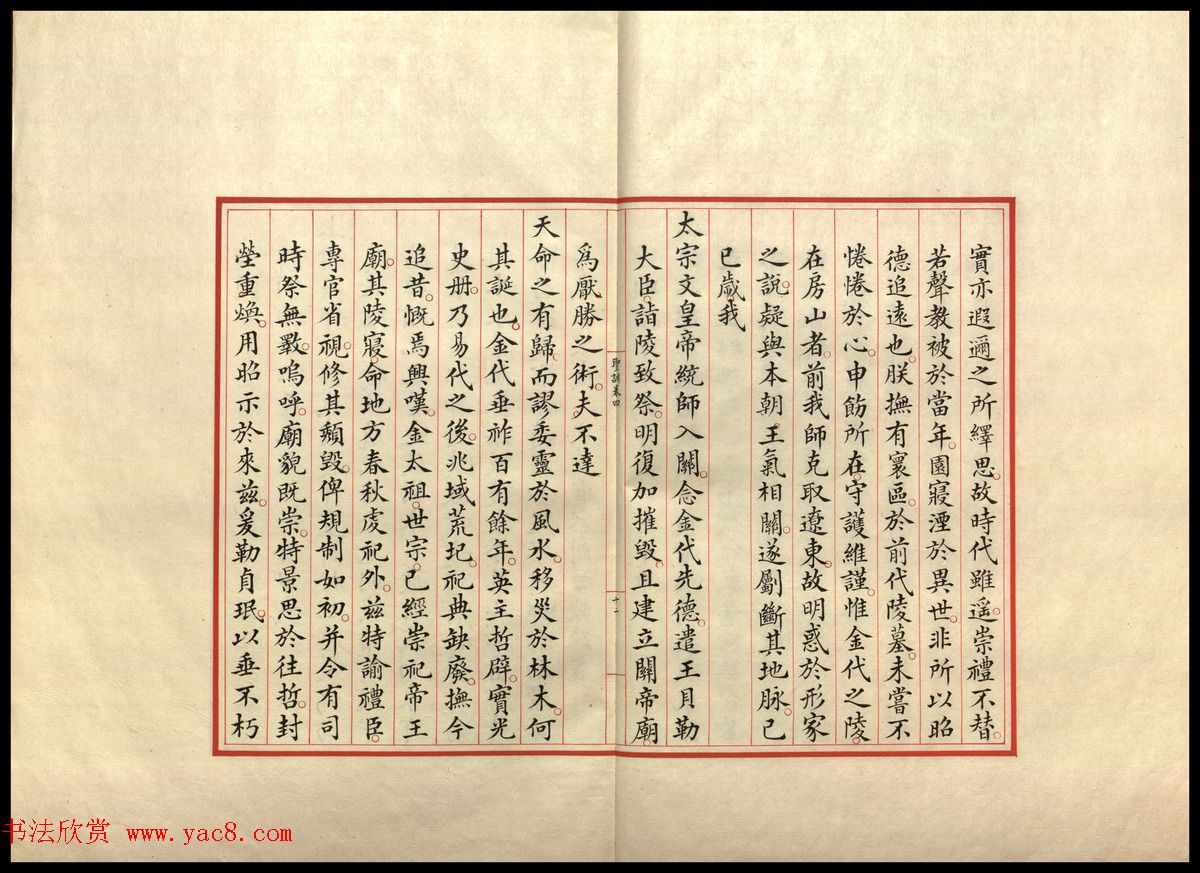 實亦遐邇之所繹思。故時代雖遥。崇禮不替。
若聲教被於當年。園寢湮於異世。非所以昭
德追遠也。朕撫有寰區。於前代陵墓。未嘗不
惓惓於心。申飭所在。守護維謹。惟金代之陵。
在房山者。前我師克取遼東。故明惑於形家
之說。疑與本朝。王氣相關。遂劚斷其地脉。已
已歲。我
太宗文皇帝統師入關。念金代先德。遣王貝勒
大臣。詣陵致祭。明復加摧毁。且建立關帝廟。
聖訓卷四
十一
爲厭勝之術。夫不達
天命之有歸。而謬委靈於風水。移災於林木。何
其誕也。金代垂祚百有餘年。英主哲辟。實光
史册。乃易代之後。兆域荒圮。祀典缺廢。撫今
追昔。慨焉興嘆。金太祖。世宗。已經崇祀帝王
廟。其陵寢。命地方春秋虔祀外。兹特諭禮臣。
專官省視。修其頹毁。俾規制如初。并令有司
時祭無斁。嗚呼。廟貌既崇。特景思於往哲。封
塋重煥。用昭示於來兹。爰勒貞珉。以垂不朽
书法欣赏 www.yac8.com